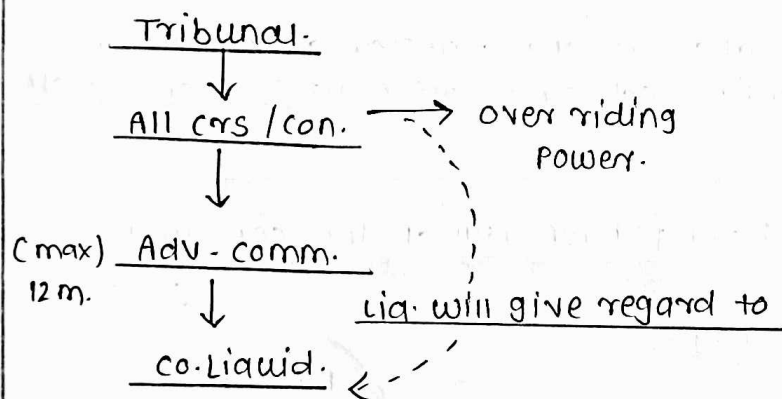 Tribunal.
All crs / con. → over riding
power.
(max) Adv - comm.
12 m.
Liq. will give regard to
co. Liquid.